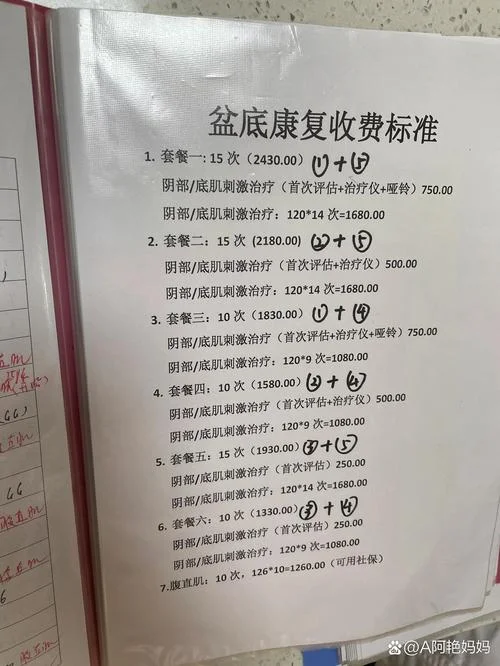 盆底康复收费标准
1. 套餐一: 15 次（2430.00） ①+⑤
阴部/底肌刺激治疗（首次评估+治疗仪+哑铃）750.00
阴部/底肌刺激治疗：120*14 次=1680.00
2. 套餐二：15 次 (2180.00) ②+⑤
阴部/底肌刺激治疗（首次评估+治疗仪）500.00
阴部/底肌刺激治疗：120*14 次=1680.00
3. 套餐三：10 次（1830.00） ①+④
阴部/底肌刺激治疗（首次评估+治疗仪+哑铃）750.00
阴部/底肌刺激治疗：120*9 次=1080.00
4. 套餐四：10 次（1580.00） ②+④
阴部/底肌刺激治疗（首次评估+治疗仪）500.00
阴部/底肌刺激治疗：120*9 次=1080.00
5. 套餐五：15 次（1930.00） ③+⑤
阴部/底肌刺激治疗（首次评估）250.00
阴部/底肌刺激治疗：120*14 次=1680.00
6. 套餐六：10 次（1330.00） ③+④
阴部/底肌刺激治疗（首次评估）250.00
阴部/底肌刺激治疗：120*9 次=1080.00
7.腹直肌：10 次，126*10=1260.00（可用社保）
@A阿艳妈妈